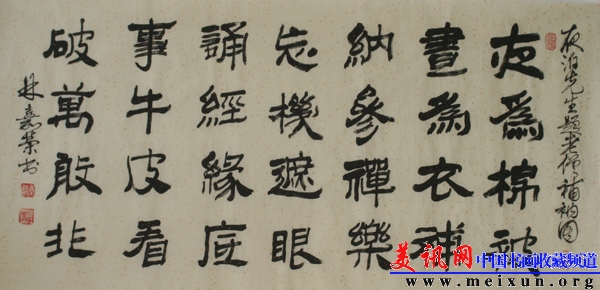 夜泊先生題老僧補衲圖
夜為棉被
晝為衣補
衲參禪樂
忘機遮眼
誦經緣底
事牛皮看
破萬般非
林嘉榮书
美讯网 中国书画收藏频道
www.meixun.org